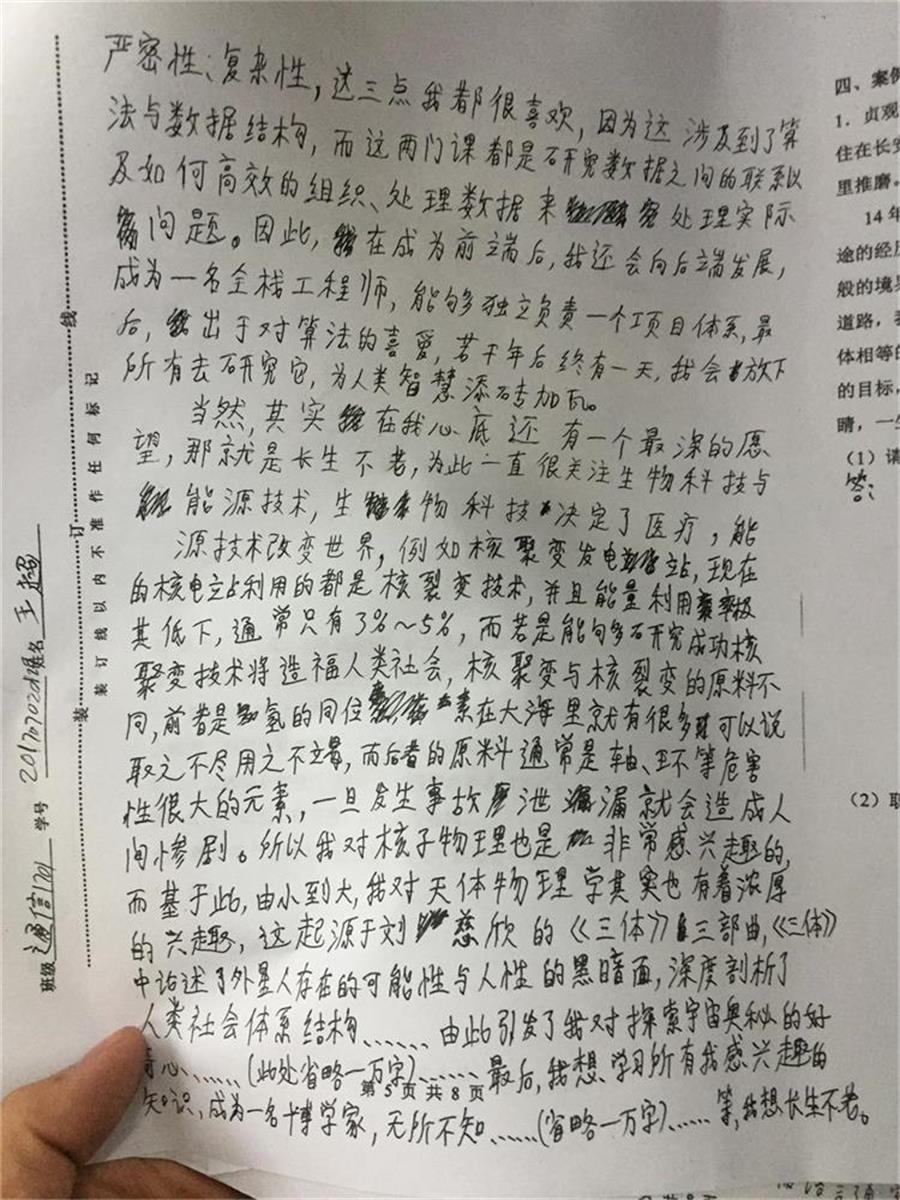 严密性、复杂性，这三点我都很喜欢，因为这涉及到了算
法与数据结构，而这两门课都是研究数据之间的联系以
及如何高效的组织、处理数据来处理实际
问题。因此，在成为前端后，我还会向后端发展，
成为一名全栈工程师，能够独立负责一个项目体系，最
后，出于对算法的喜爱，若干年后终有一天，我会放下
所有去研究它，为人类智慧添砖加瓦。
当然，其实在我心底还有一个最深的愿
望，那就是长生不老，为此一直很关注生物科技与
能源技术，生物科技决定了医疗，能
源技术改变世界，例如核聚变发电站，现在
的核电站利用的都是核裂变技术，并且能量利用率极
其低下，通常只有3%～5%，而若是能够研究成功核
聚变技术将造福人类社会，核聚变与核裂变的原料不
同，前者是氢的同位素在大海里就有很多可以说
取之不尽用之不竭，而后者的原料通常是轴、环等危害
性很大的元素，一旦发生事故泄漏就会造成人
间惨剧。所以我对核子物理也是非常感兴趣的，
而基于此，由小到大，我对天体物理学其实也有着浓厚
的兴趣，这起源于刘慈欣的《《三体》》三部曲，《三体》
中论述了外星人存在的可能性与人性的黑暗面，深度剖析了
人类社会体系结构……由此引发了我对探索宇宙奥秘的好
奇心……(此处省略一万字)……最后，我想学习所有我感兴趣的
知识，成为一名博学家，无所不知……(省略一万字)……等，我想长生不老。
第 5 页 共 8 页
线
订
装
装订线以内不准作任何标记
班级 通信1701 学号 姓名 王超
四、案例
1．贞观
住在长安
里推磨。
14年
途的经历
般的境界
道路，我
体相等的
的目标，
睛，一生
（1）请
答：
（2）取